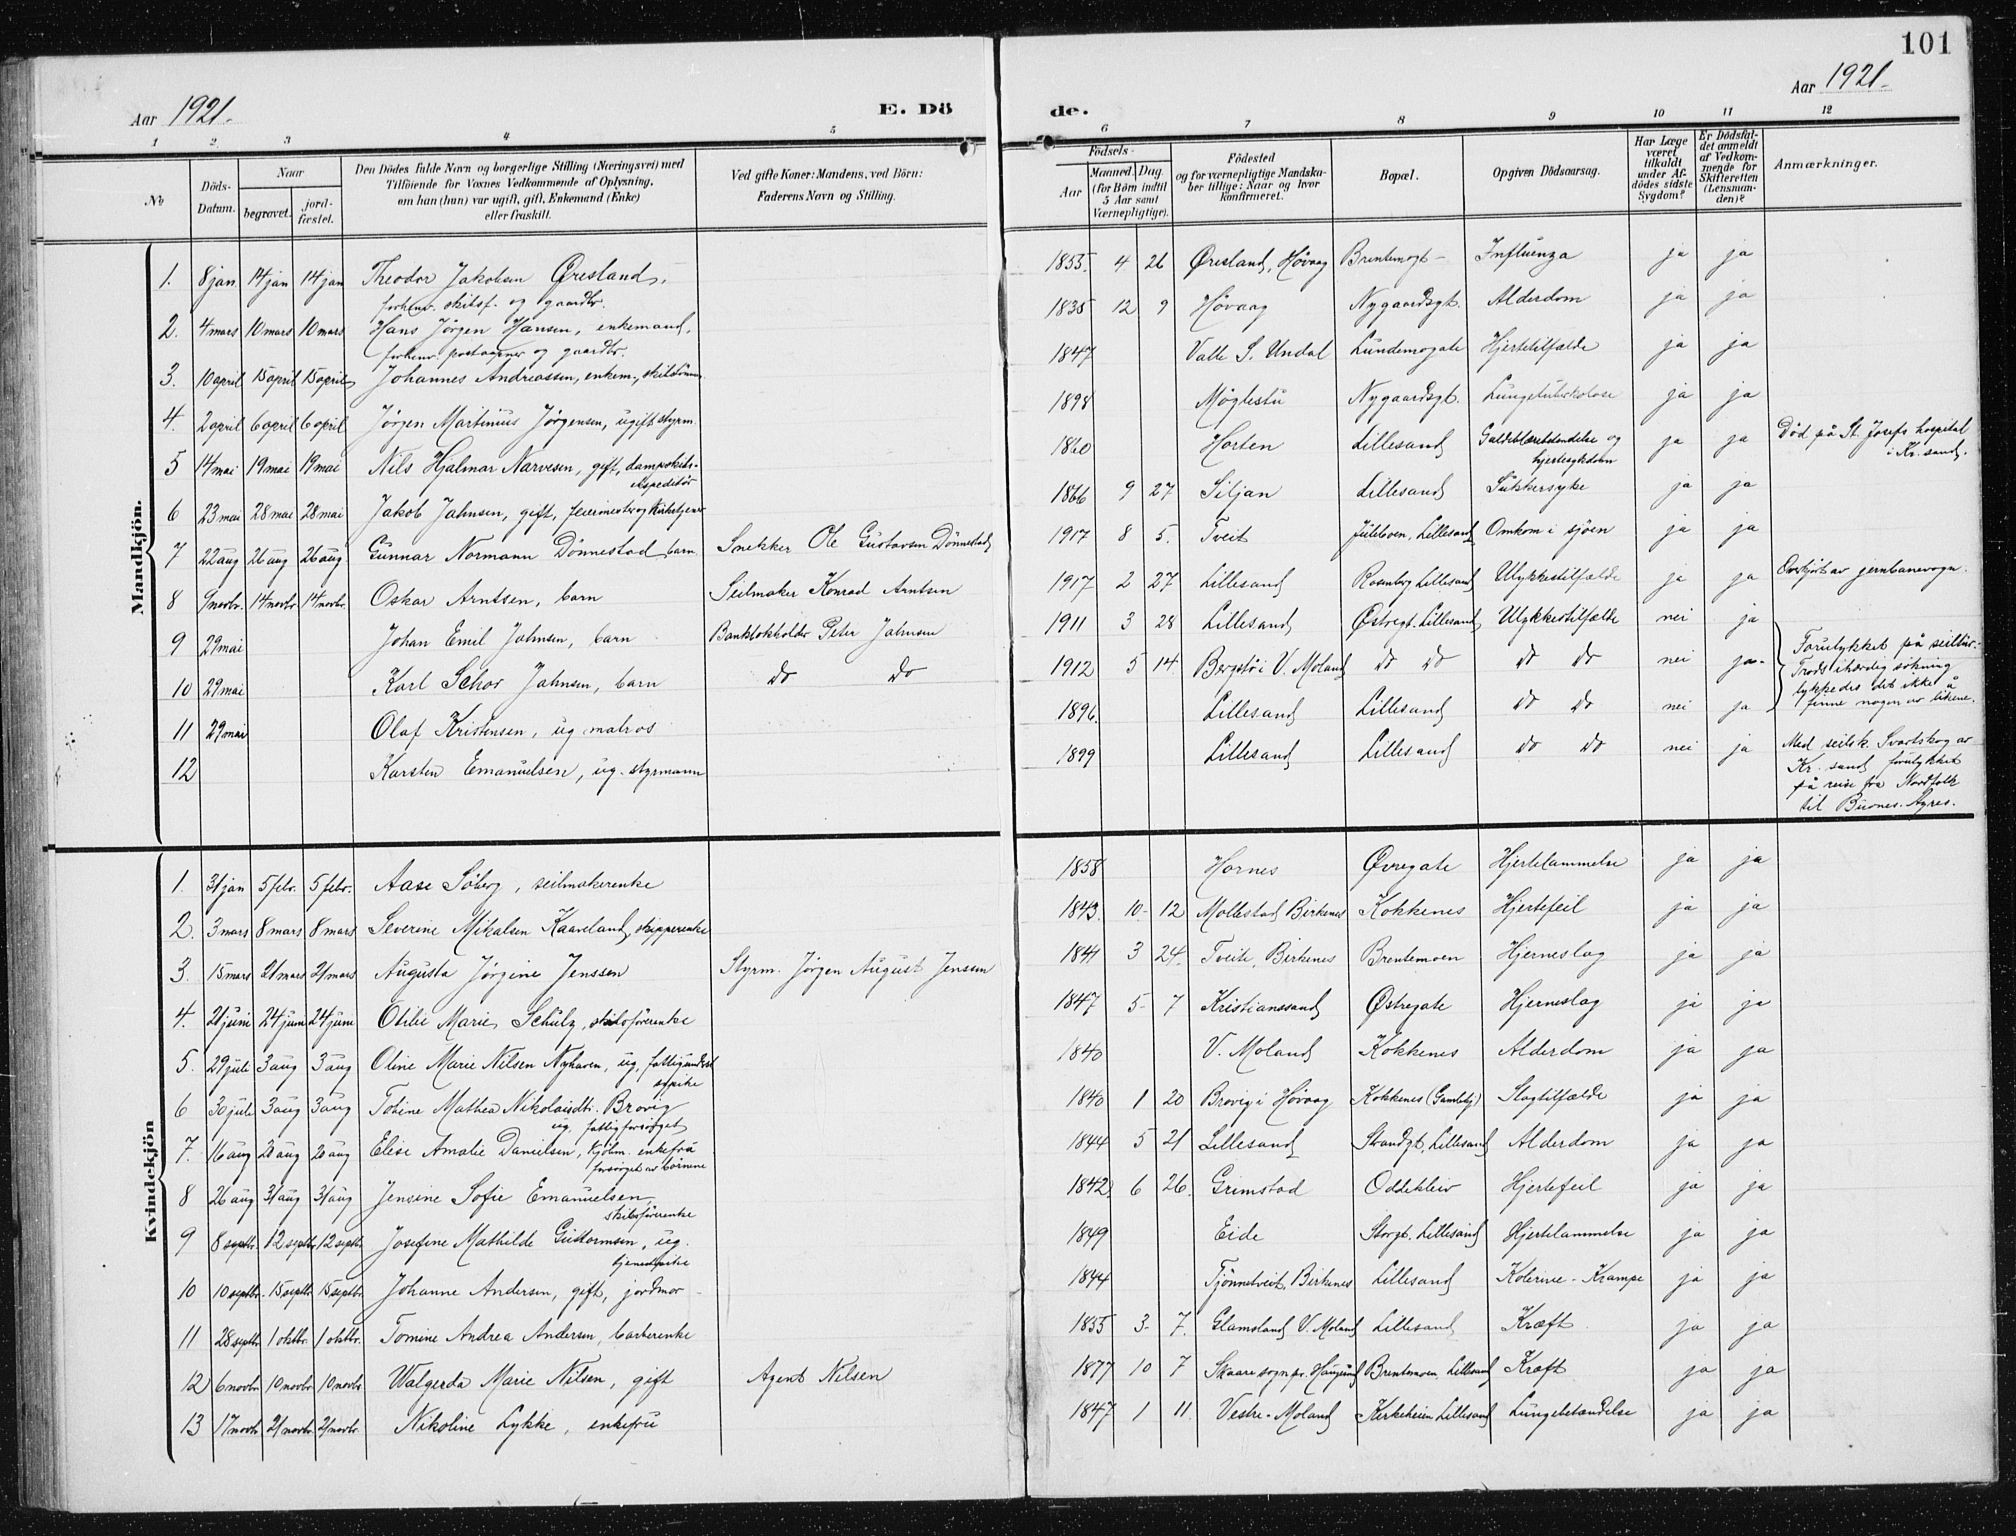 101
Aar 1921.
E. Dö
de.
Aar 1921.
1 2 3 4 5
6 7 8 9 10 11 12
№
Döds-Datum.
Naar
begravet.
jord-fæstet.
Den Dödes fulde Navn og borgerlige Stilling (Næringsvei) med
Tilföiende for Voxnes Vedkommende af Oplysning,
om han (hun) var ugift, gift, Enkemand (Enke)
eller fraskilt.
Ved gifte Koner: Mandens, ved Börn:
Faderens Navn og Stilling.
Födsels-
Aar
Maaned. Dag.
(for Börn indtil
5 Aar samt
Værnepligtige).
Födested
og for værnepligtige Mandska-
ber tillige: Naar og hvor
konfirmeret.
Bopæl.
Opgiven Dödsaarsag.
Har Læge
været
tilkaldt
under Af-
dödes sidste
Sygdom?
Er Dödsfal-
det anmeldt
af Vedkom-
mende for
Skifteretten
(Lensman-
den)?
Anmærkninger.
Mandkjön.
1. 8 jan 14 jan 14 jan Theodor Jakobsen Øresland, 1855. 4 26 Øresland, Høvaag Brentemogt- Influenza ja ja
forhenv. skibsf. og gaardbr.
2. 4 mars 10 mars 10 mars Hans Jørgen Hansen, enkemand, 1835 12 9 Høvaag Nygaardsgt. Alderdom ja ja
forhenv. postaapner og gaardbr.
3. 10 april 15 april 15 april Johannes Andreassen, enkem., 1847 Valle S. Undal Lundemogate Hjertetilfælde ja ja
4. 2 april 6 april 6 april Jørgen Martinius Jørgensen, ugift styrm. 1898 Møglestu Nygaardsgt. Lungetuberkulose ja ja
5 14 mai 19 mai 19 mai Nils Hjalmar Narvesen, gift, dampskibs-
expeditør 1860 Horten Lillesand Galdeblærebetændelse og
hjertesykdom ja ja Død på St. Josefs hospital
i Kr. sand.
6 23 mai 28 mai 28 mai Jakob Jahnsen, gift, feiermester og kirketjener 1866 9 27 Siljan Lillesand Sukkersyke ja ja
7 22 aug 26 aug 26 aug Gunnar Normann Dønnestad, barn Snekker Ole Gustavsen Dønnestad 1917 8 5. Tveit Lillesand Omkom i sjøen ja ja
8 9 novbr. 14 novbr. 14 novbr. Oskar Arntsen, barn Seilmaker Konrad Arntsen 1917 2 27 Lillesand Rosenberg Lillesand Ulykkestilfælde ja ja Overkjørt av jernbanevogn.
9 29 mai Johan Emil Jahnsen, barn Bankbokholder Peter Jahnsen 1911 3 28 Lillesand Østregt. Lillesand Ulykkestilfælde nei ja
10 29 mai Karl Schor Jahnsen, barn do do 1912 5 14. Bergstø i V. Moland do do do do nei ja.
11 29 mai Olaf Kristensen, ug matros 1896. Lillesand Lillesand do do nei ja
Forulykket på seiltur.
Trods ihærdig søkning
lykkedes det ikke å
finne nogen av likene.
12 Karsten Emanuelsen, ug. styrmann 1899 Lillesand Lillesand do do nei ja
Med seilsk. Svartskog av
Kr. sand forulykket
på reise fra Nordfolk
til Buenos-Ayres.
Kvindekjön
1. 31 jan 5 febr. 5 febr. Aase Söberg, seilmakerenke 1858 Hornes Øvregate Hjertelammelse ja ja
2. 3 mars 8 mars 8 mars Severine Mikalsen Kaaveland, skipperenke 1843. 10- 12 Mollestad, Birkenes Kokkenes Hjertefeil ja ja
3. 15 mars 21 mars 21 mars Augusta Jørgine Jenssen Styrm. Jørgen August Jensen 1841 3 24. Tveite, Birkenes Brentemoen Hjerneslag ja ja
4. 21 juni 24 juni 24 juni Otilie Marie Schulz, skibsförerenke 1847 5- 7 Kristianssand Østregate Hjerneslag ja ja
5. 29 juli 3 aug 3 aug Oline Marie Nilsen Nyhaven, ug. 1840 V. Moland Kokkenes Alderdom ja ja
6 30 juli 3 aug 3 aug Tobine Mathea Nikolaisdtr. Brovig
ug. fattigforsørget 1840 1 20 Brovig i Høvaag Kokkenes (Gamleby) Slagtilfælde ja ja
7. 16 aug 20 aug 20 aug Elise Amalie Danielsen, kjøbm. enkefru
forsørget av børnene 1844 5 21 Lillesand Strandgt. Lillesand Alderdom ja ja
8 26 aug 31 aug 31 aug Jensine Sofie Emanuelsen,
skibsförerenke 1842 6 26. Grimstad Oddekleiv Hjertefeil ja ja
9 8 septbr. 12 septbr 12 septbr Josefine Mathilde Guttormsen, ug.
tjenestepike 1849 Eide Storgt. Lillesand Hjertelammelse ja ja
10 10 septbr. 15 septbr 15 septbr Johanne Andersen, gift, jordmor 1844 Tjønnetveit, Birkenes Lillesand Kolerine-Krampe ja ja
11 28 septbr 1 oktbr. 1 oktbr. Tomine Andrea Andersen, barberenke 1855 3- 7. Glamsland V. Moland Lillesand Kræft ja ja
12 6 novbr 10 novbr. 10 novbr Walgerda Marie Nilsen, gift Agent Nilsen 1877 10 7 Skaare sognpr. Haugesund Brentemoen, Lillesand Kræft ja ja
13 17 novbr 21 novbr. 21 novbr. Nikoline Lykke, enkefru 1847 1 11. Vestre-Moland Kirkeheien Lillesand Lungebetændelse ja ja